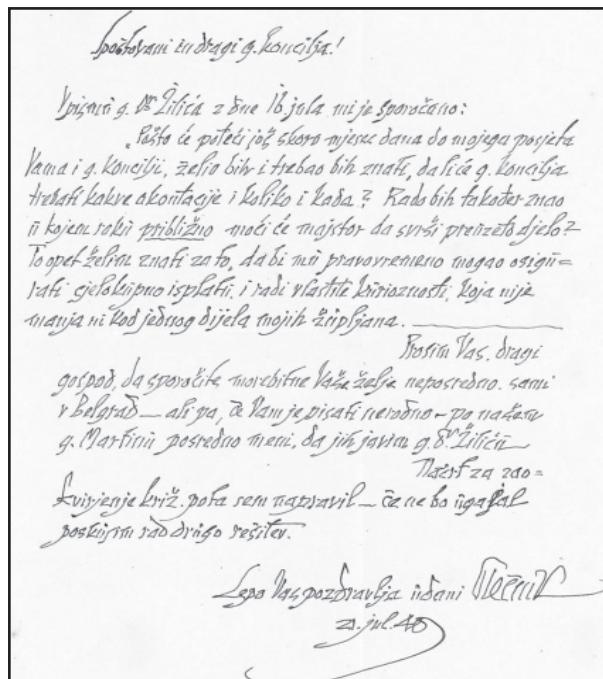 Spoštovani in dragi g. Koncilja!
V pismu g. Dr Žilića z dne 16. jula mi je sporočano:
„Pošto će poteći još skoro mjesec dana do mojega posjeta
Vama i g. Koncilji, želio bih i trebao bih znati, da li će g. Koncilja
trebati kakve akontacije i koliko i kada? Rado bih također znao
u kojem roku približno moći će majstor da svrši preuzeto djelo?
To opet želim znati zato, da bi mu pravovremeno mogao osigu=
rati cjelokupno isplatu, i radi vlastite kurioznosti, koja nije
manja ni kod jednog dijela mojih župljana.
Prosim Vas, dragi
gospod, da sporočite morebitne Vaše želje neposredno sami
v Belgrad — ali pa, če Vam je pisati nerodno — po našem
g. Martinu posredno meni, da jih javim g. Dr Žiliću
Načrt za zao=
kvirjenje križ. pota sem napravil — če ne bo ugajal
poskusim rad drugo rešitev.
Lepo Vas pozdravlja udani Plečnik
21. jul. 40